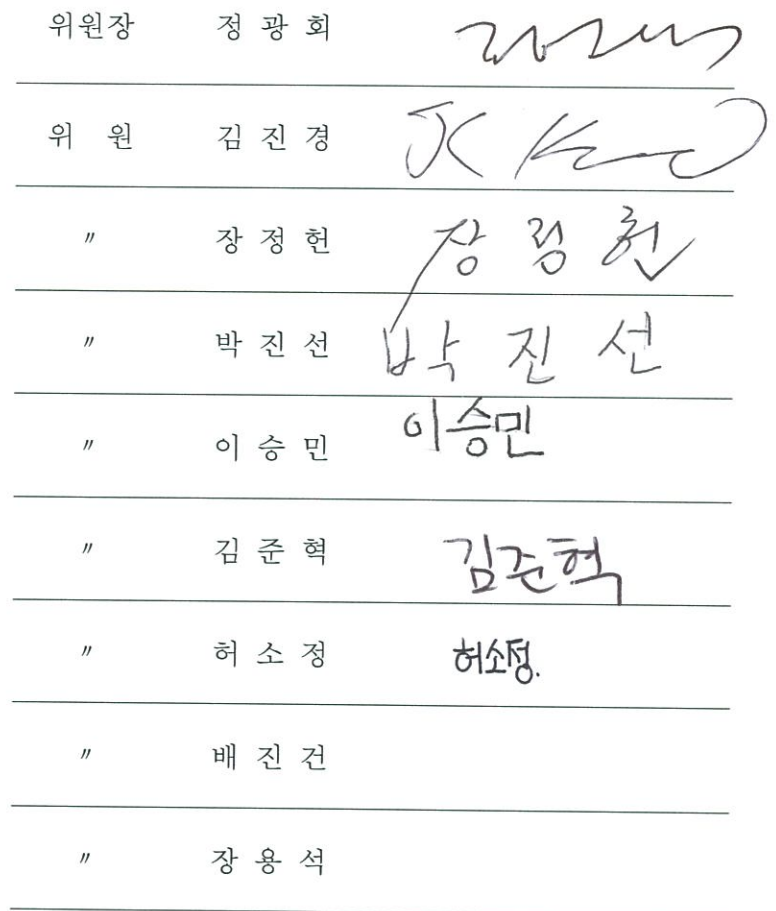 위원장 정 광 회
위 원 김 진 경 JK K
〃 장 정 헌 장 정 헌
〃 박 진 선 박 진 선
〃 이 승 민 이승민
〃 김 준 혁 김준혁
〃 허 소 정 허소정.
〃 배 진 건
〃 장 용 석